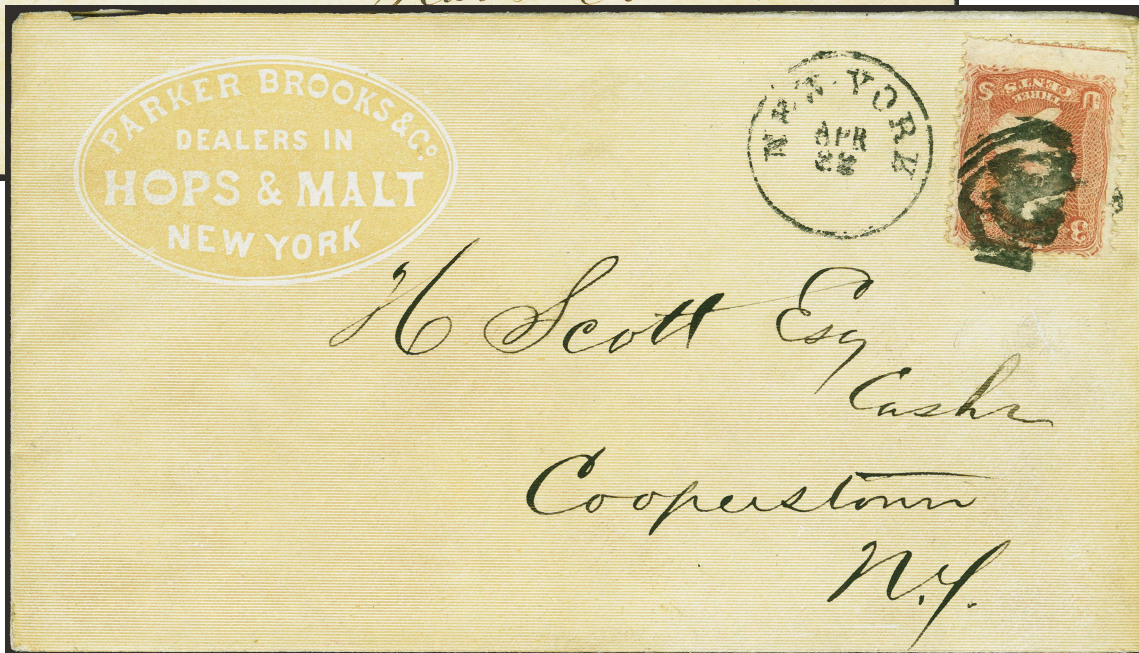 PARKER BROOKS & Co.
DEALERS IN
HOPS & MALT
NEW YORK
NEW-YORK
APR
22
U S
THREE
CENTS
3
H Scott Esq
Cashr
Cooperstown
N.Y.